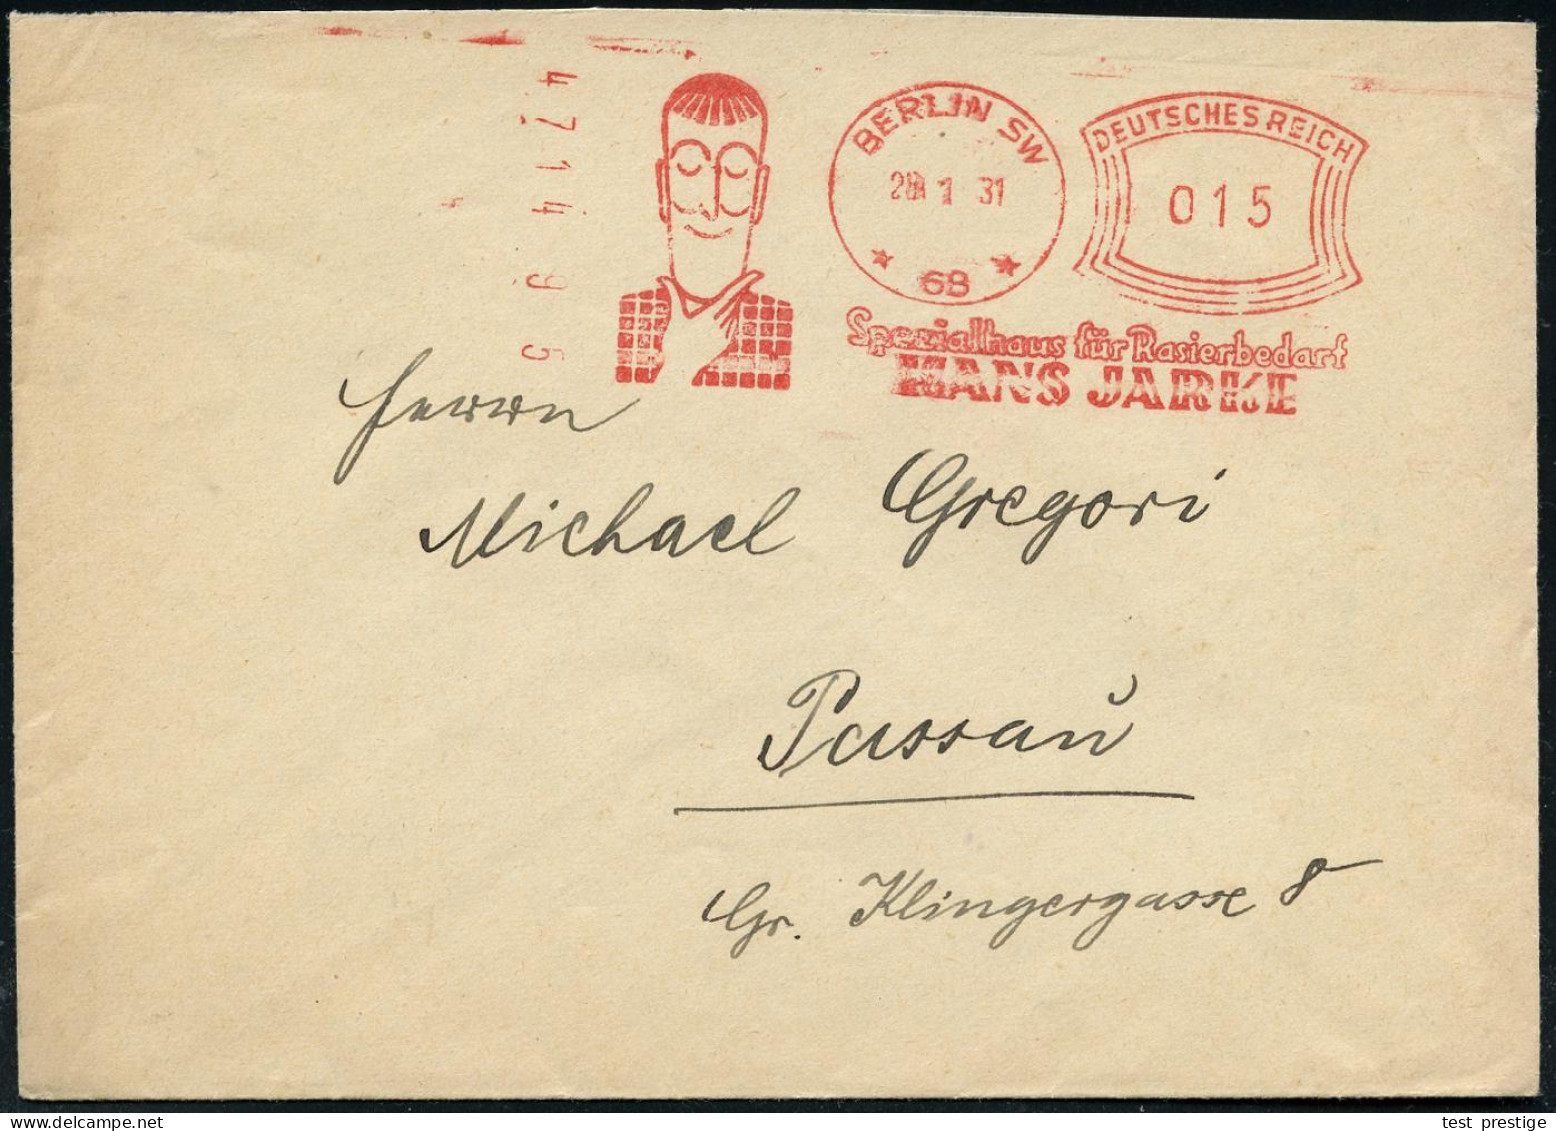 4 7 1 4 9 5
BERLIN SW
1 31
68
DEUTSCHES REICH
015
Spezialhaus für Rasierbedarf
HANS JARKE
Herrn
Michael Gregori
Passau
Gr. Klingergasse 8
test prestige